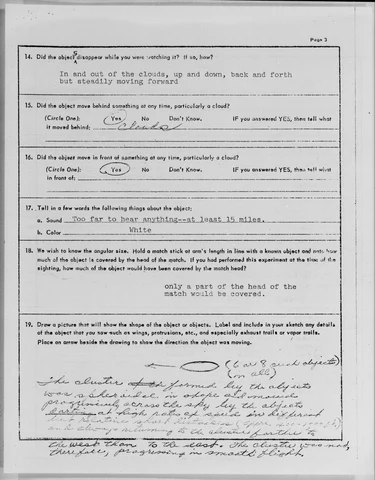 Page 3
14. Did the objects disappear while you were watching it? If so, how?
In and out of the clouds, up and down, back and forth
but steadily moving forward
15. Did the object move behind something at any time, particularly a cloud?
(Circle One): Yes No Don't Know. IF you answered YES, then tell what
it moved behind: clouds
16. Did the object move in front of something at any time, particularly a cloud?
(Circle One): Yes No Don't Know. IF you answered YES, then tell what
in front of:
17. Tell in a few words the following things about the object:
a. Sound Too far to hear anything--at least 15 miles.
b. Color White
18. We wish to know the angular size. Hold a match stick at arm's length in line with a known object and note how
much of the object is covered by the head of the match. If you had performed this experiment at the time of the
sighting, how much of the object would have been covered by the match head?
only a part of the head of the
match would be covered.
19. Draw a picture that will show the shape of the object or objects. Label and include in your sketch any details
of the object that you saw such as wings, protrusions, etc., and especially exhaust trails or vapor trails.
Place an arrow beside the drawing to show the direction the object was moving.
(6 or 8 such objects
in all)
The cluster formed by the objects
was spheroidal in shape and moved
progressively across the sky by the objects
at high rates of speed in different
and always returning to the cluster, farther to
the west than to the east. The cluster was not,
therefore, progressing in smooth flight.